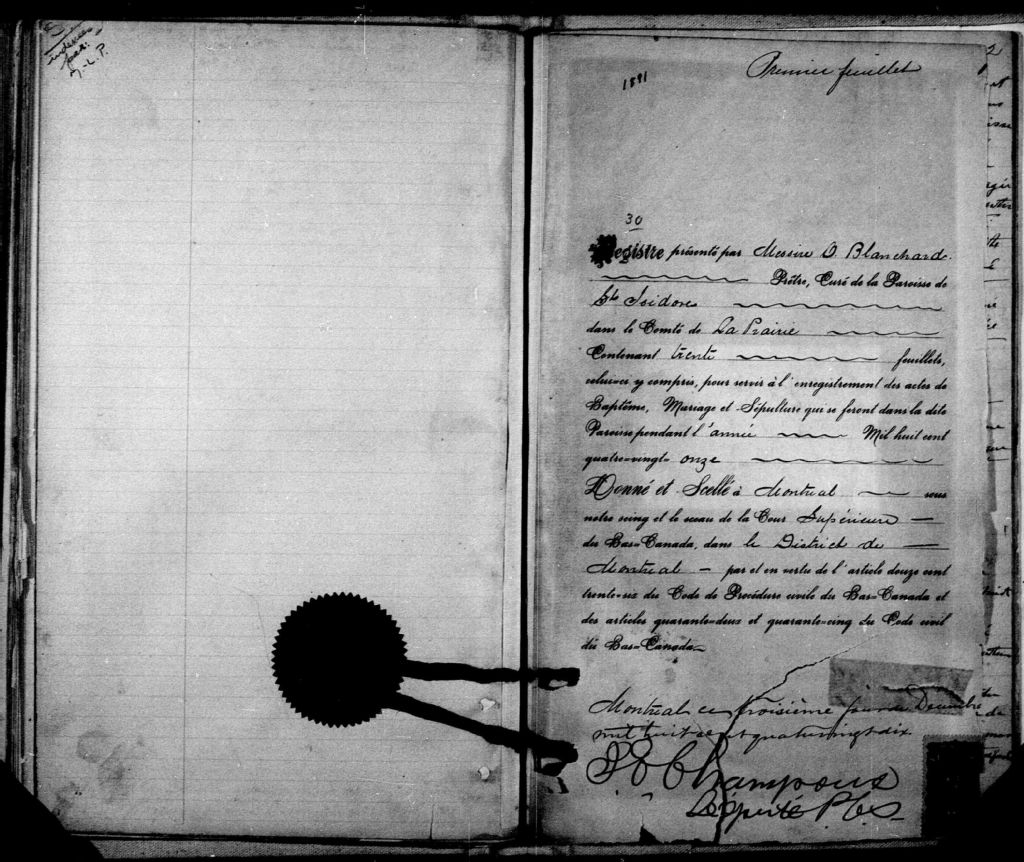 indexé
par
J.-L. P.
1891
Premier feuillet
30
Registre présenté par Messire O. Blanchard
Prêtre, Curé de la Paroisse de
St Isidore
dans le Comté de La Prairie
Contenant trente feuillets,
celui-ci y compris, pour servir à l'enregistrement des actes de
Baptême, Mariage et Sépulture qui se feront dans la dite
Paroisse pendant l'année Mil huit cent
quatre-vingt-onze
Donné et Scellé à Montréal sous
notre seing et le sceau de la Cour Supérieure
du Bas-Canada, dans le District de
Montréal par et en vertu de l'article douze cent
trente-six du Code de Procédure civile du Bas-Canada et
des articles quarante-deux et quarante-cinq du Code civil
du Bas-Canada
Montréal ce troisième jour de Décembre
mil huit cent quatrevingt dix
Champoux
Député P.C.S.